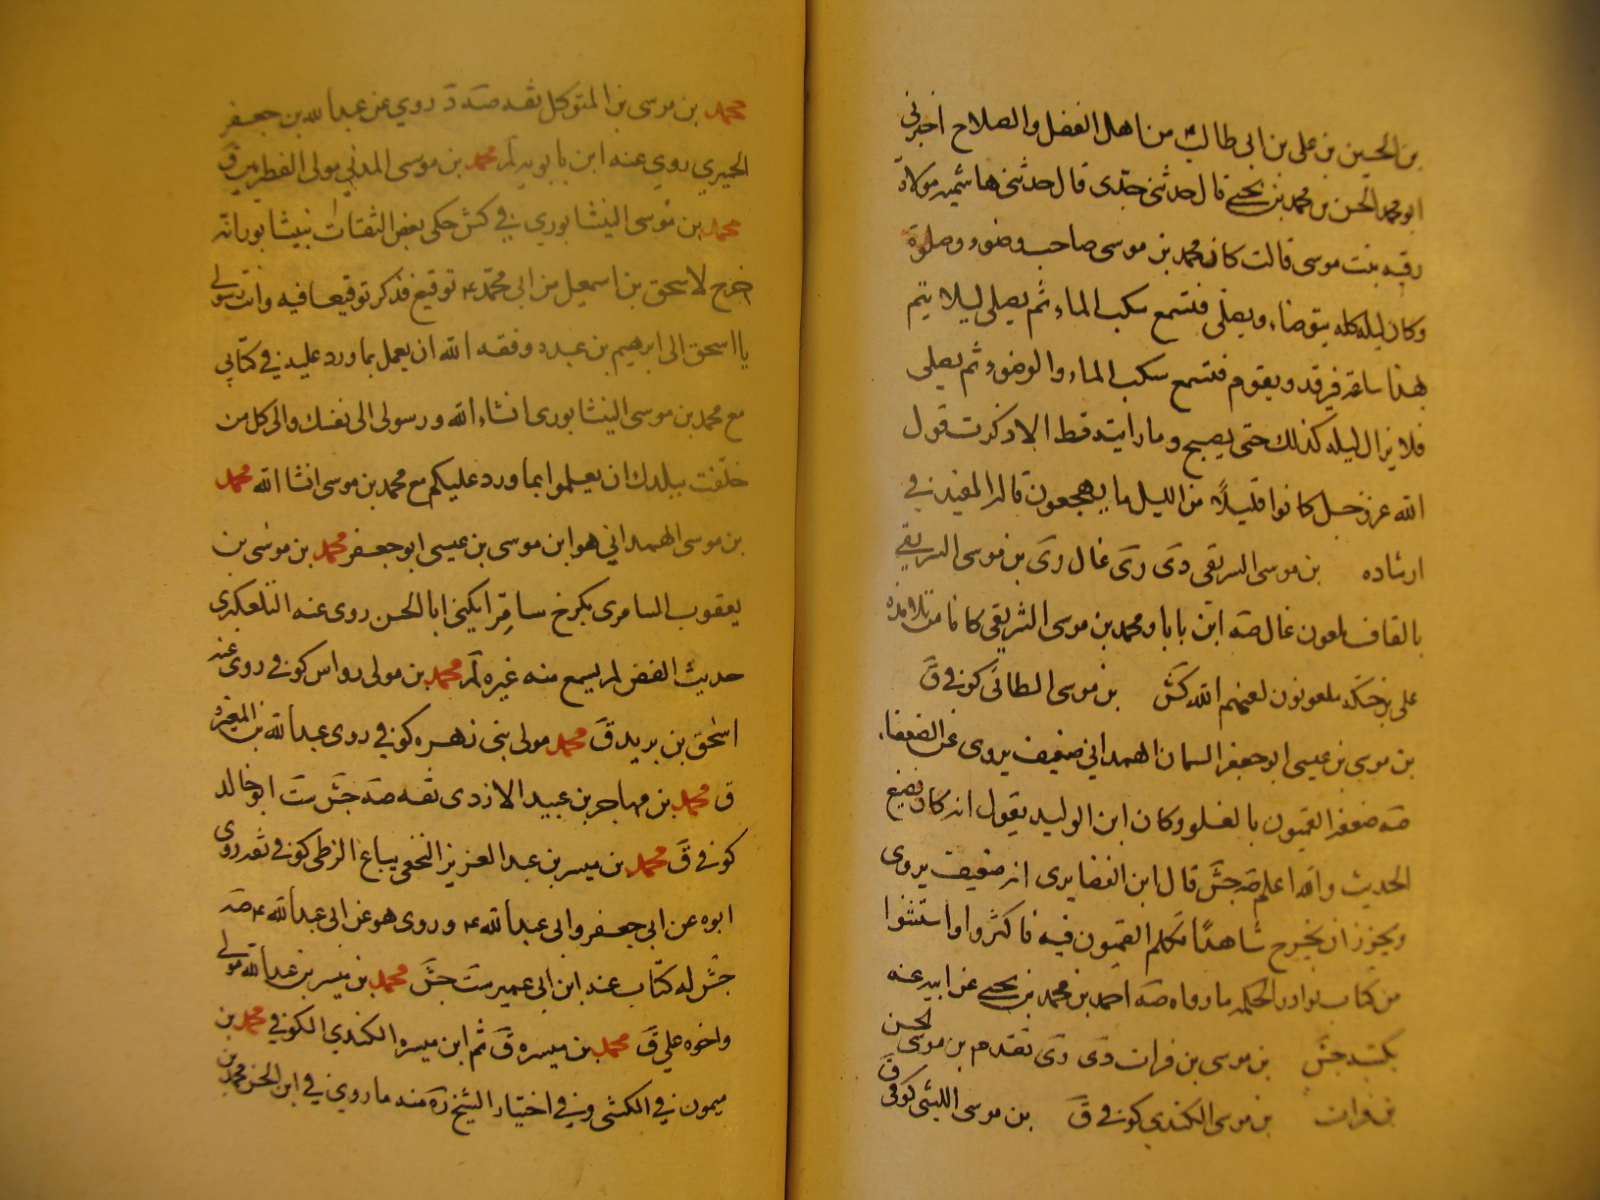 بن الحسين بن علي بن ابي طالب ع من اهل الفضل والصلاح اخبرني
ابو محمد الحسن بن محمد بن يحيى قال حدثني جدى قال حدثتني هاشميه مولاة
رقيه بنت موسى قالت كان محمد بن موسى صاحب وضوء وصلوة
وكان ليله كله يتوضاء ويصلي فنسمع سكب الماء ثم يصلي ليلا ثم
يهدا ساعة فيرقد ويقوم فنسمع سكب الماء والوضوء ثم يصلي
فلا يزال ليله كذلك حتى يصبح وما رايته قط الا ذكرت قول
الله عز وجل كانوا قليلا من الليل ما يهجعون قاله المفيد في
ارشاده بن موسى السريقي دى رى غال وى بن موسى السريقي
بالقاف ملعون غال صه ابن بابا ومحمد بن موسى الشريقي كانا من تلامذه
علي بن حسكه ملعونون لعنهم الله كش بن موسى الطائي كوفي ق
بن موسى بن عيسى ابو جعفر السمان الهمداني ضعيف يروى عن الضعفاء
صه ضعفه القميون بالغلو وكان ابن الوليد يقول انه كان يضع
الحديث والله اعلم صه جش قال ابن الغضايرى انه ضعيف يروى
ويجوز ان يخرج شاهدا تكلم القميون فيه فاكثروا واستثنوا
من كتاب نوادر الحكمه ما رواه صه احمد بن محمد بن يحيى عن ابيه عنه
بكتبه جش بن موسى بن فرات دى رى تقدم بن موسى بن الحسن
بن فرات بن موسى الكندي كوفي ق بن موسى الليثى كوفي ق
محمد بن موسى بن المتوكل ثقه صه د روي عن عبد الله بن جعفر
الحميري روي عنه ابن بابويه لم محمد بن موسى المدني مولى الفطريين ق
محمد بن موسى النيشابوري في كش حكى بعض الثقات بنيشابور انه
خرج لاسحق بن اسمعيل من ابي محمد ع توقيع فذكر توقيعا فيه وانت رسولي
يا اسحق الى ابرهيم بن عبده وفقه الله ان يعمل بما ورد عليه في كتابي
مع محمد بن موسى النيشابورى انشاء الله ورسولى الى نفسك والى كل من
خلفت ببلدك ان يعملوا بما ورد عليكم مع محمد بن موسى انشا الله محمد
بن موسى الهمداني هو ابن موسى بن عيسى ابو جعفر محمد بن موسى بن
يعقوب السامرى بكرخ سامره يكنى ابا الحسن روى عنه التلعكبرى
حديث القنص لم يسمع منه غيره لم محمد بن مولى رواس كوفي روى عنه
اسحق بن بريد ق محمد مولى بني زهره كوفي روى عبد الله بن المغيره
ق محمد بن مهاجر بن عبيد الازدى ثقه صه جش ست ابو خالد
كوفي ق محمد بن ميسر بن عبد العزيز النخعي بياع الزطي كوفي ثقه روى
ابوه عن ابي جعفر وابي عبد الله ع وروى هو عن ابي عبد الله ع صه
جش له كتاب عنه ابن ابي عمير ست جش محمد بن ميسر بن عبد الله مولى
واخوه علي ق محمد بن ميسره ق ثم ابن ميسره الكندي الكوفي محمد بن
ميمون في الكشى وفي اختيار الشيخ ره منه ما روي في ابن الحسن محمد بن